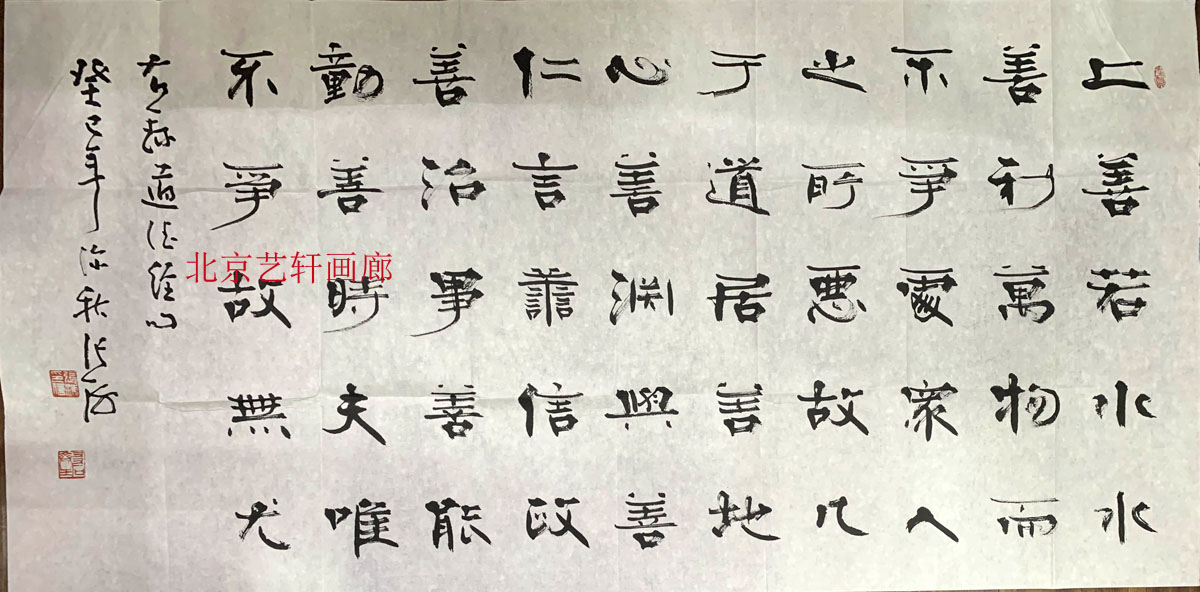 上善若水水
善利萬物而
不爭處衆人
之所悪故几
于道居善地
心善淵與善
仁言善信政
善治事善能
動善時夫唯
不爭故無尤
右錄道德經句
癸巳年深秋
北京艺轩画廊